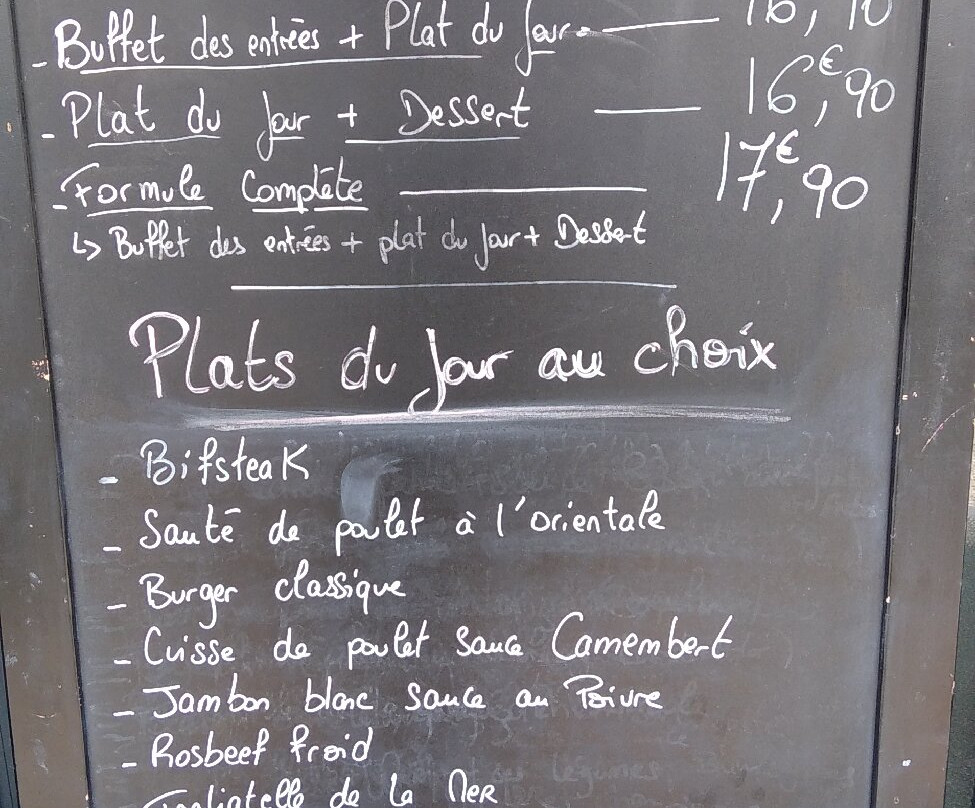 - Buffet des entrées + Plat du Jour — 16,90
- Plat du Jour + Dessert — 16€,90
- Formule Complète — 17€,90
↳ Buffet des entrées + plat du Jour + Dessert
Plats du Jour au choix
- Bifsteak
- Sauté de poulet à l'orientale
- Burger classique
- Cuisse de poulet sauce Camembert
- Jambon blanc sauce au Poivre
- Rosbeef froid
- Tagliatelle de la Mer